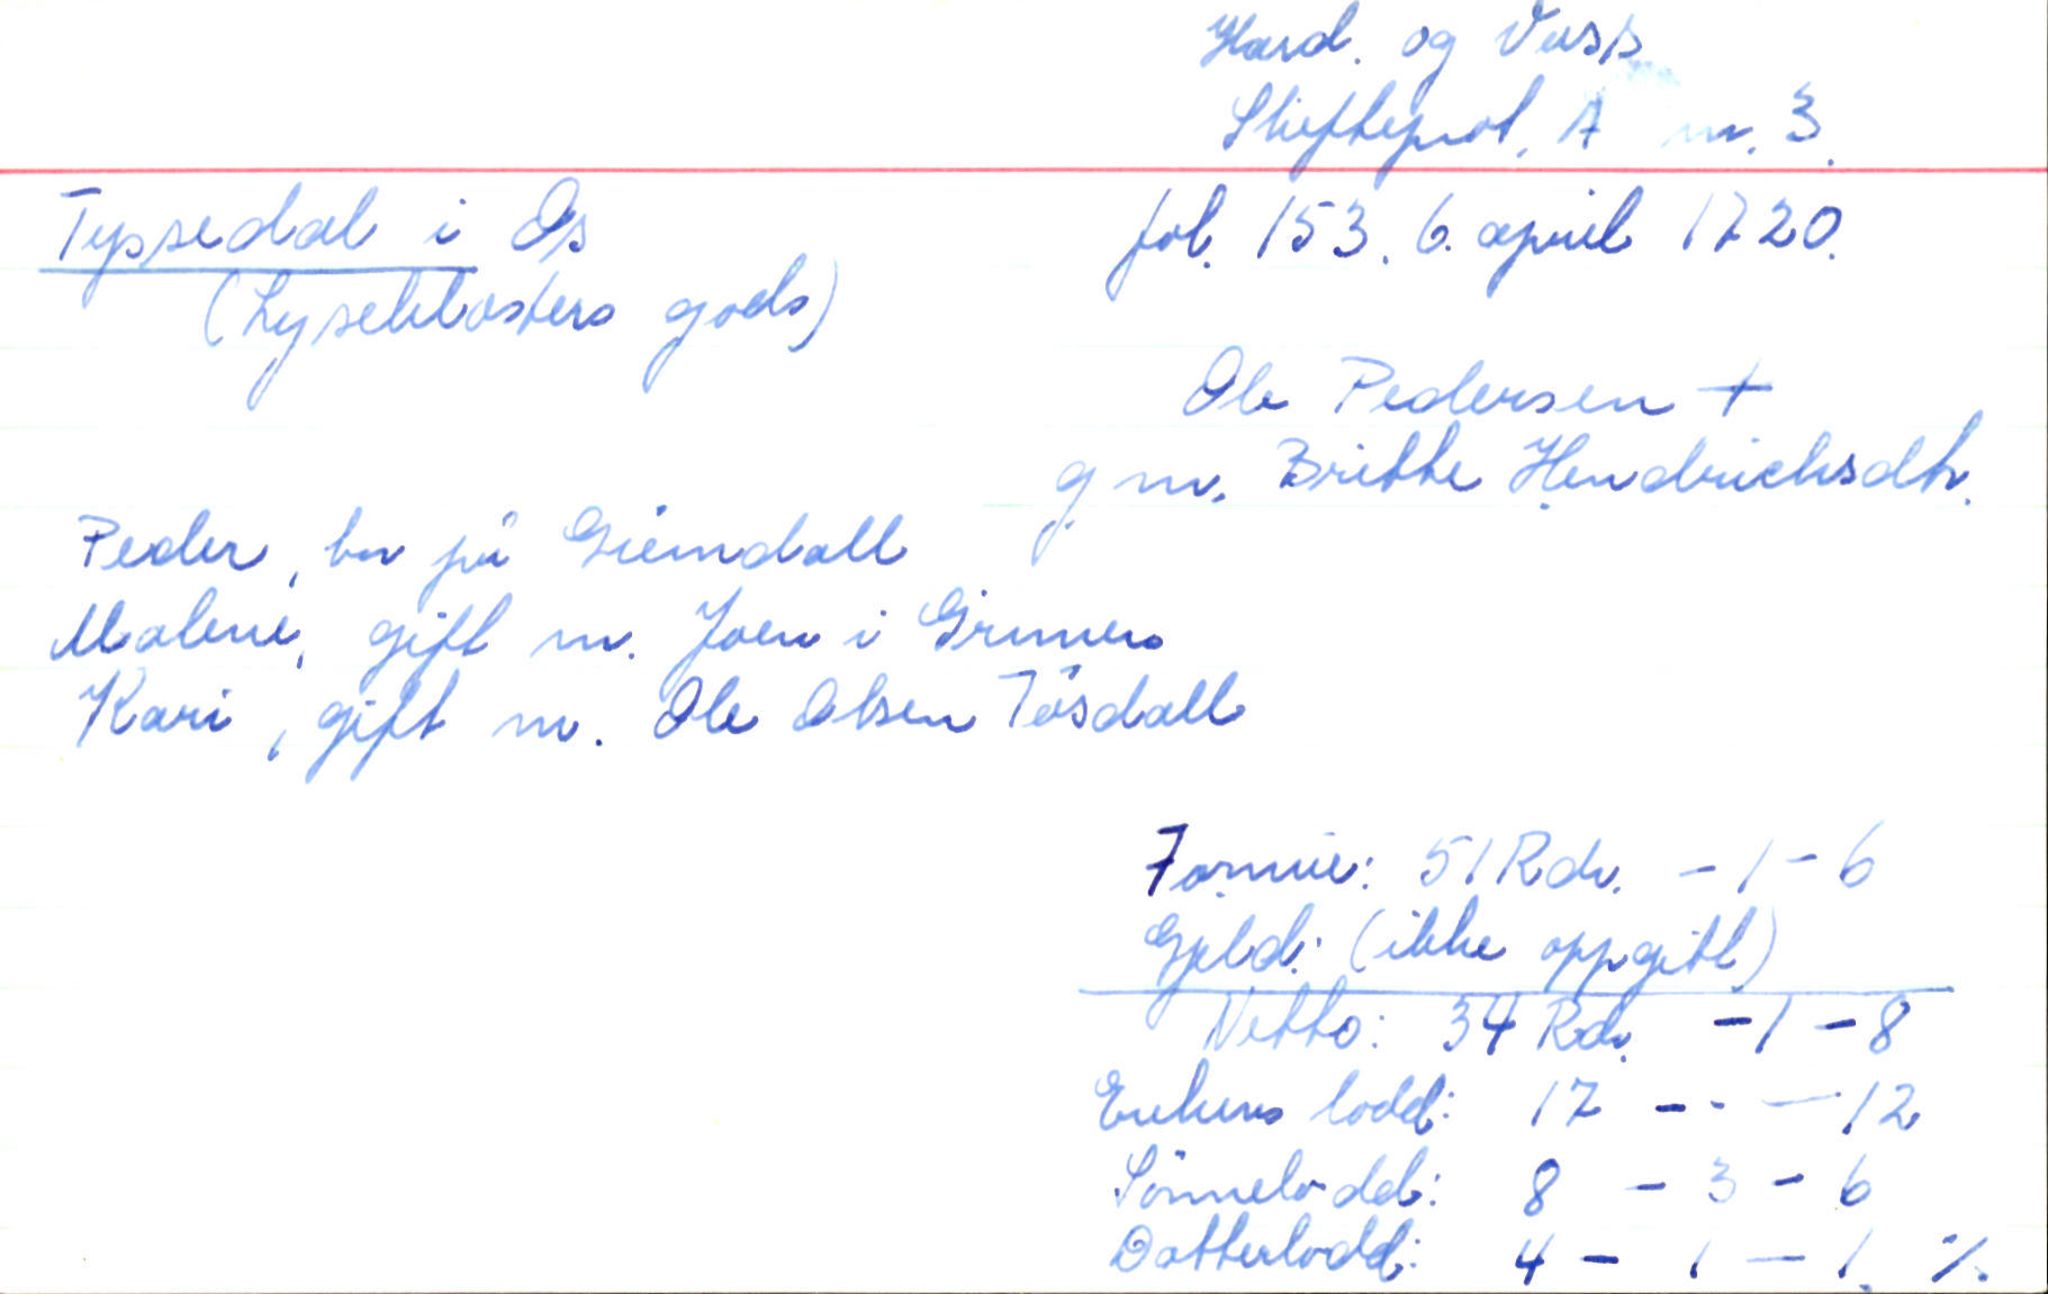 Hard. og Voss
Skifteprot. A nr. 3.
Tyssedal i Os
fol. 153. 6. april 1720.
(Lyseklosters gods)
Ole Pedersen +
g m. Britte Hendrichsdtr.
Peder, bor på Giemdall
Malene, gift m. Joen i Grimen
Kari, gift m. Ole Olsen Tøsdall
Formue: 51 Rdr. - 1 - 6
Gjeld: (ikke oppgitt)
Netto: 34 Rdr. - 1 - 8
Enkens lodd: 17 - - - 12
Sønnelodd: 8 - 3 - 6
Datterlodd: 4 - 1 - 1. %.